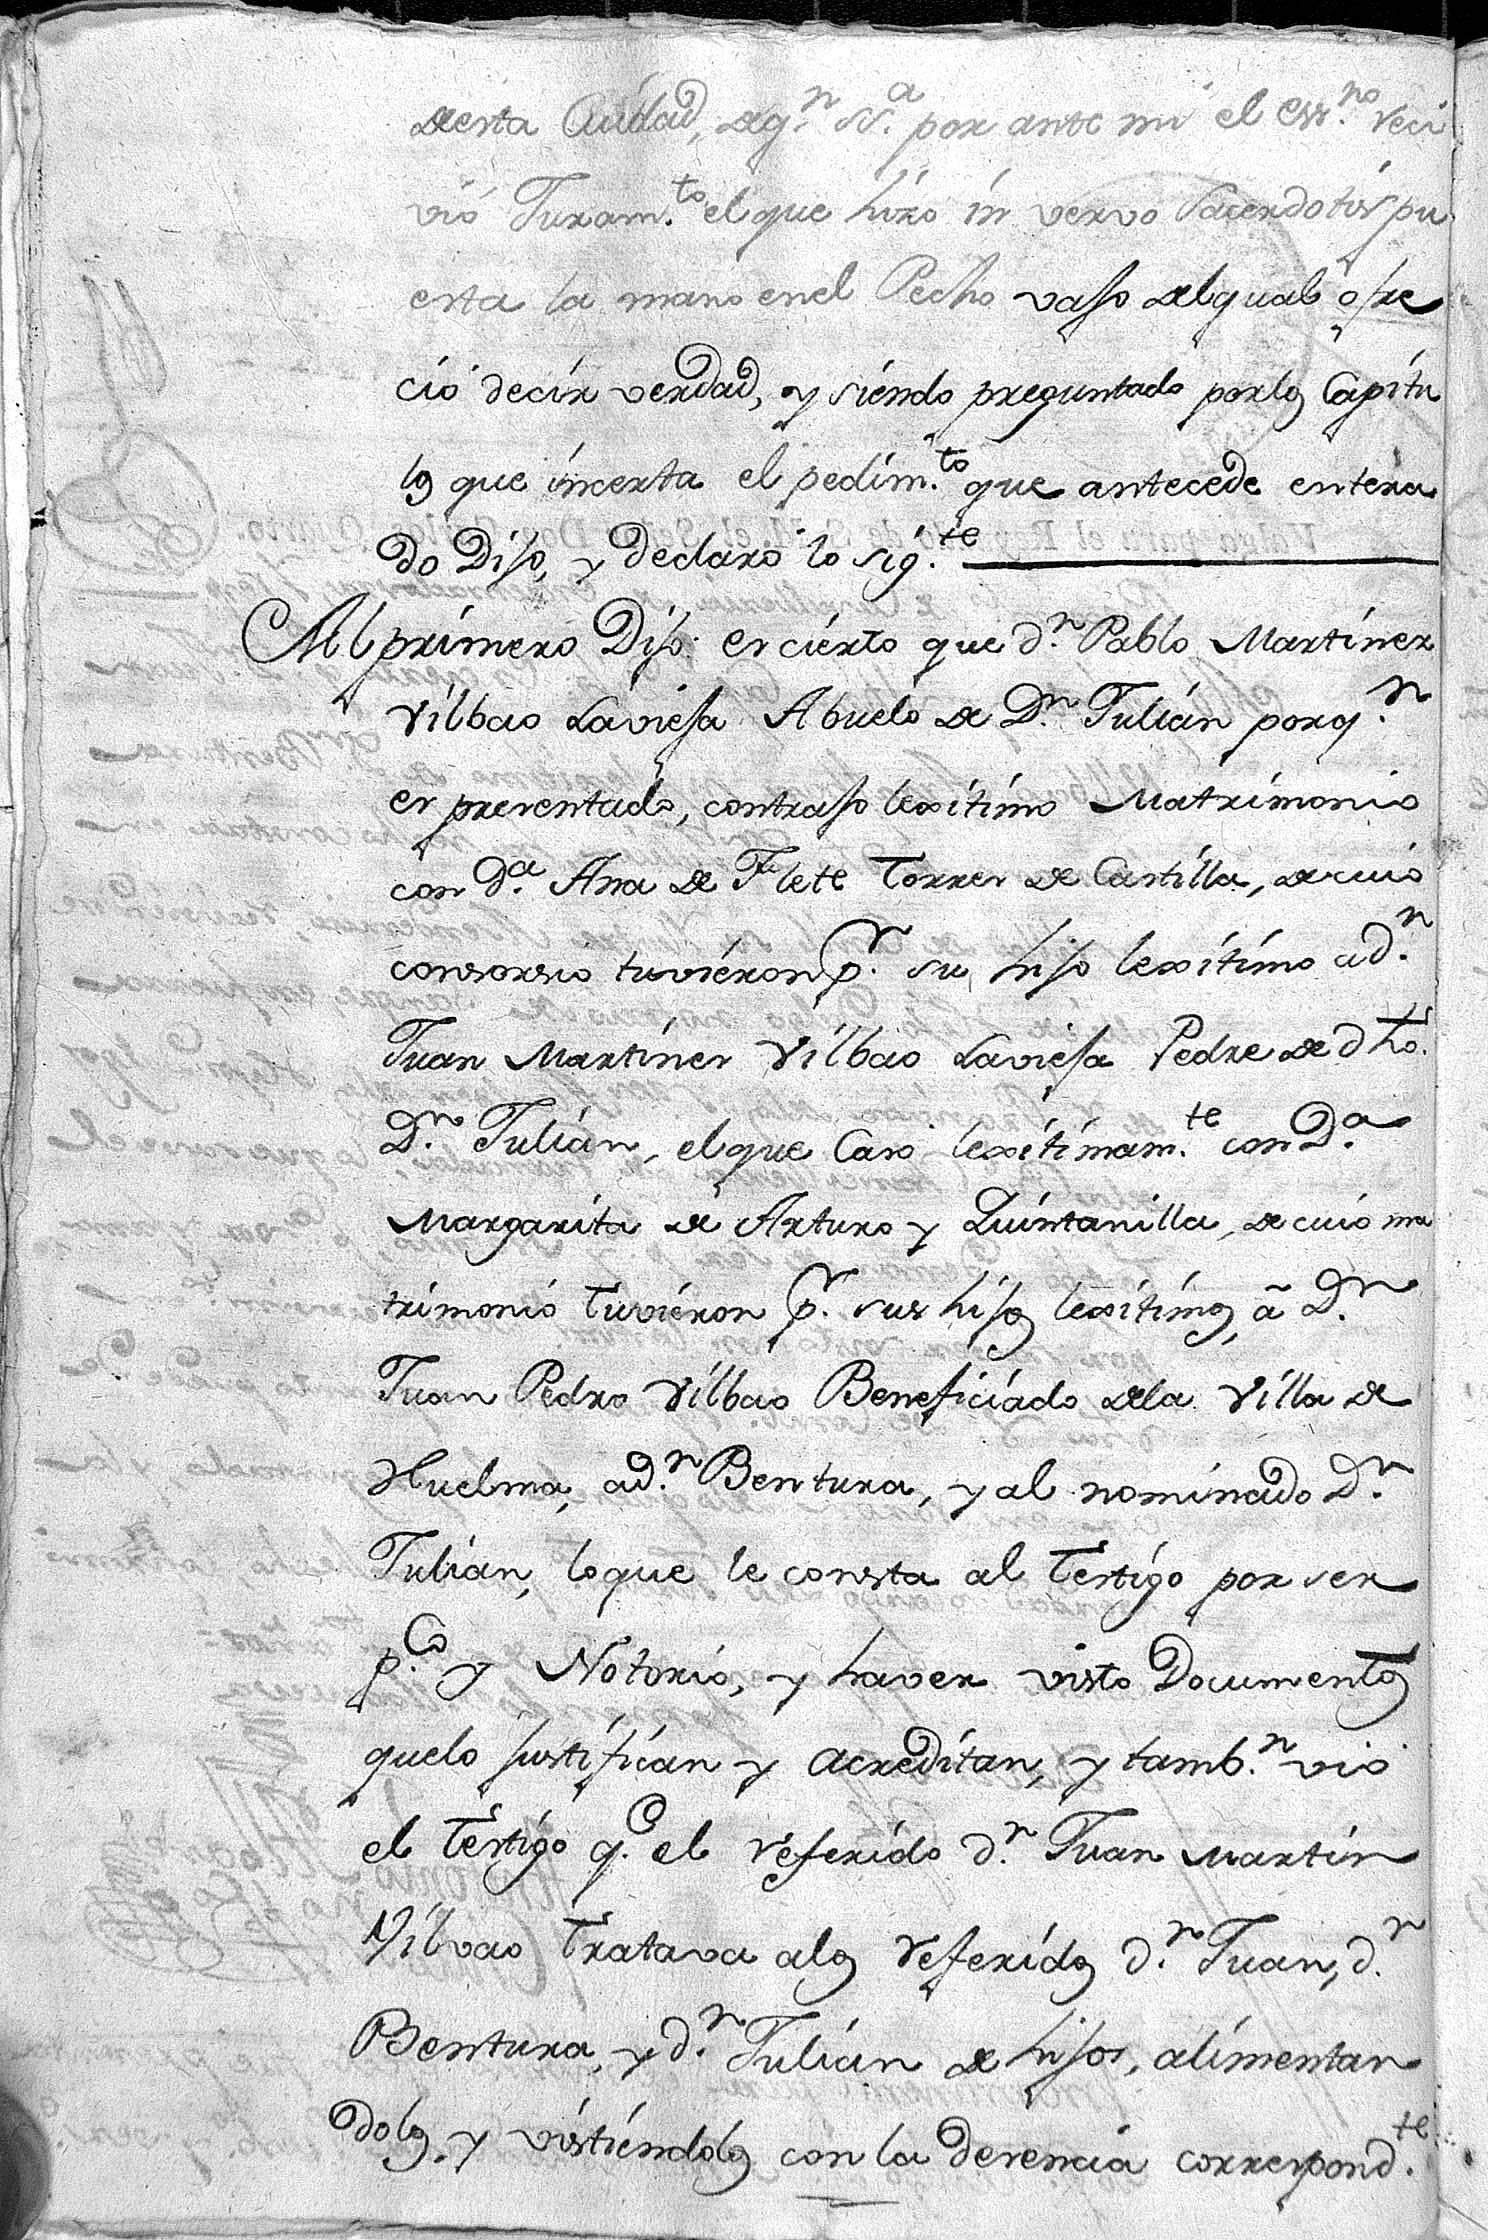 desta Ciudad, deq.n S.a por ante mi el Ess.no reci
vió Juram.to el que hizo in vervo Sacerdotis pu
esta la mano en el Pecho vajo del qual ofre
ció decir verdad, y siendo preguntado por los Capitu
los que incerta el pedim.to que antecede entera
do Dijo, y declaro lo sig.te
Al primero Dijo: es cierto que d.n Pablo Martinez
Vilbao Laviesa Abuelo de D.n Julian por q.n
es presentado, contrajo lexitimo Matrimonio
con d.a Ana de Flete Torres de Castilla, de cuio
consorsio tuvieron p.r su hijo lexitimo a d.n
Juan Martines Vilbao Laviesa Pedre de dho.
D.n Julian, el que Caso lexitimam.te con D.a
Margarita de Arturo y Quintanilla, de cuio ma
trimonio tuvieron p.r sus hijos lexitimos, a D.n
Juan Pedro Vilbao Beneficiado dela Villa de
Huelma, a d.n Bentura, y al nominado D.n
Julian, lo que le consta al testigo por ser
p.co y Notorio, y haver visto Documentos
quelo justifican y acreditan, y tamb.n vio
el testigo q.e el referido d.n Juan Martin
Vilvao tratava alos referidos d.n Juan, d.n
Bentura, y d.n Julian de hijos, alimentan
dolos, y vistiendolos con la desencia correspond.te